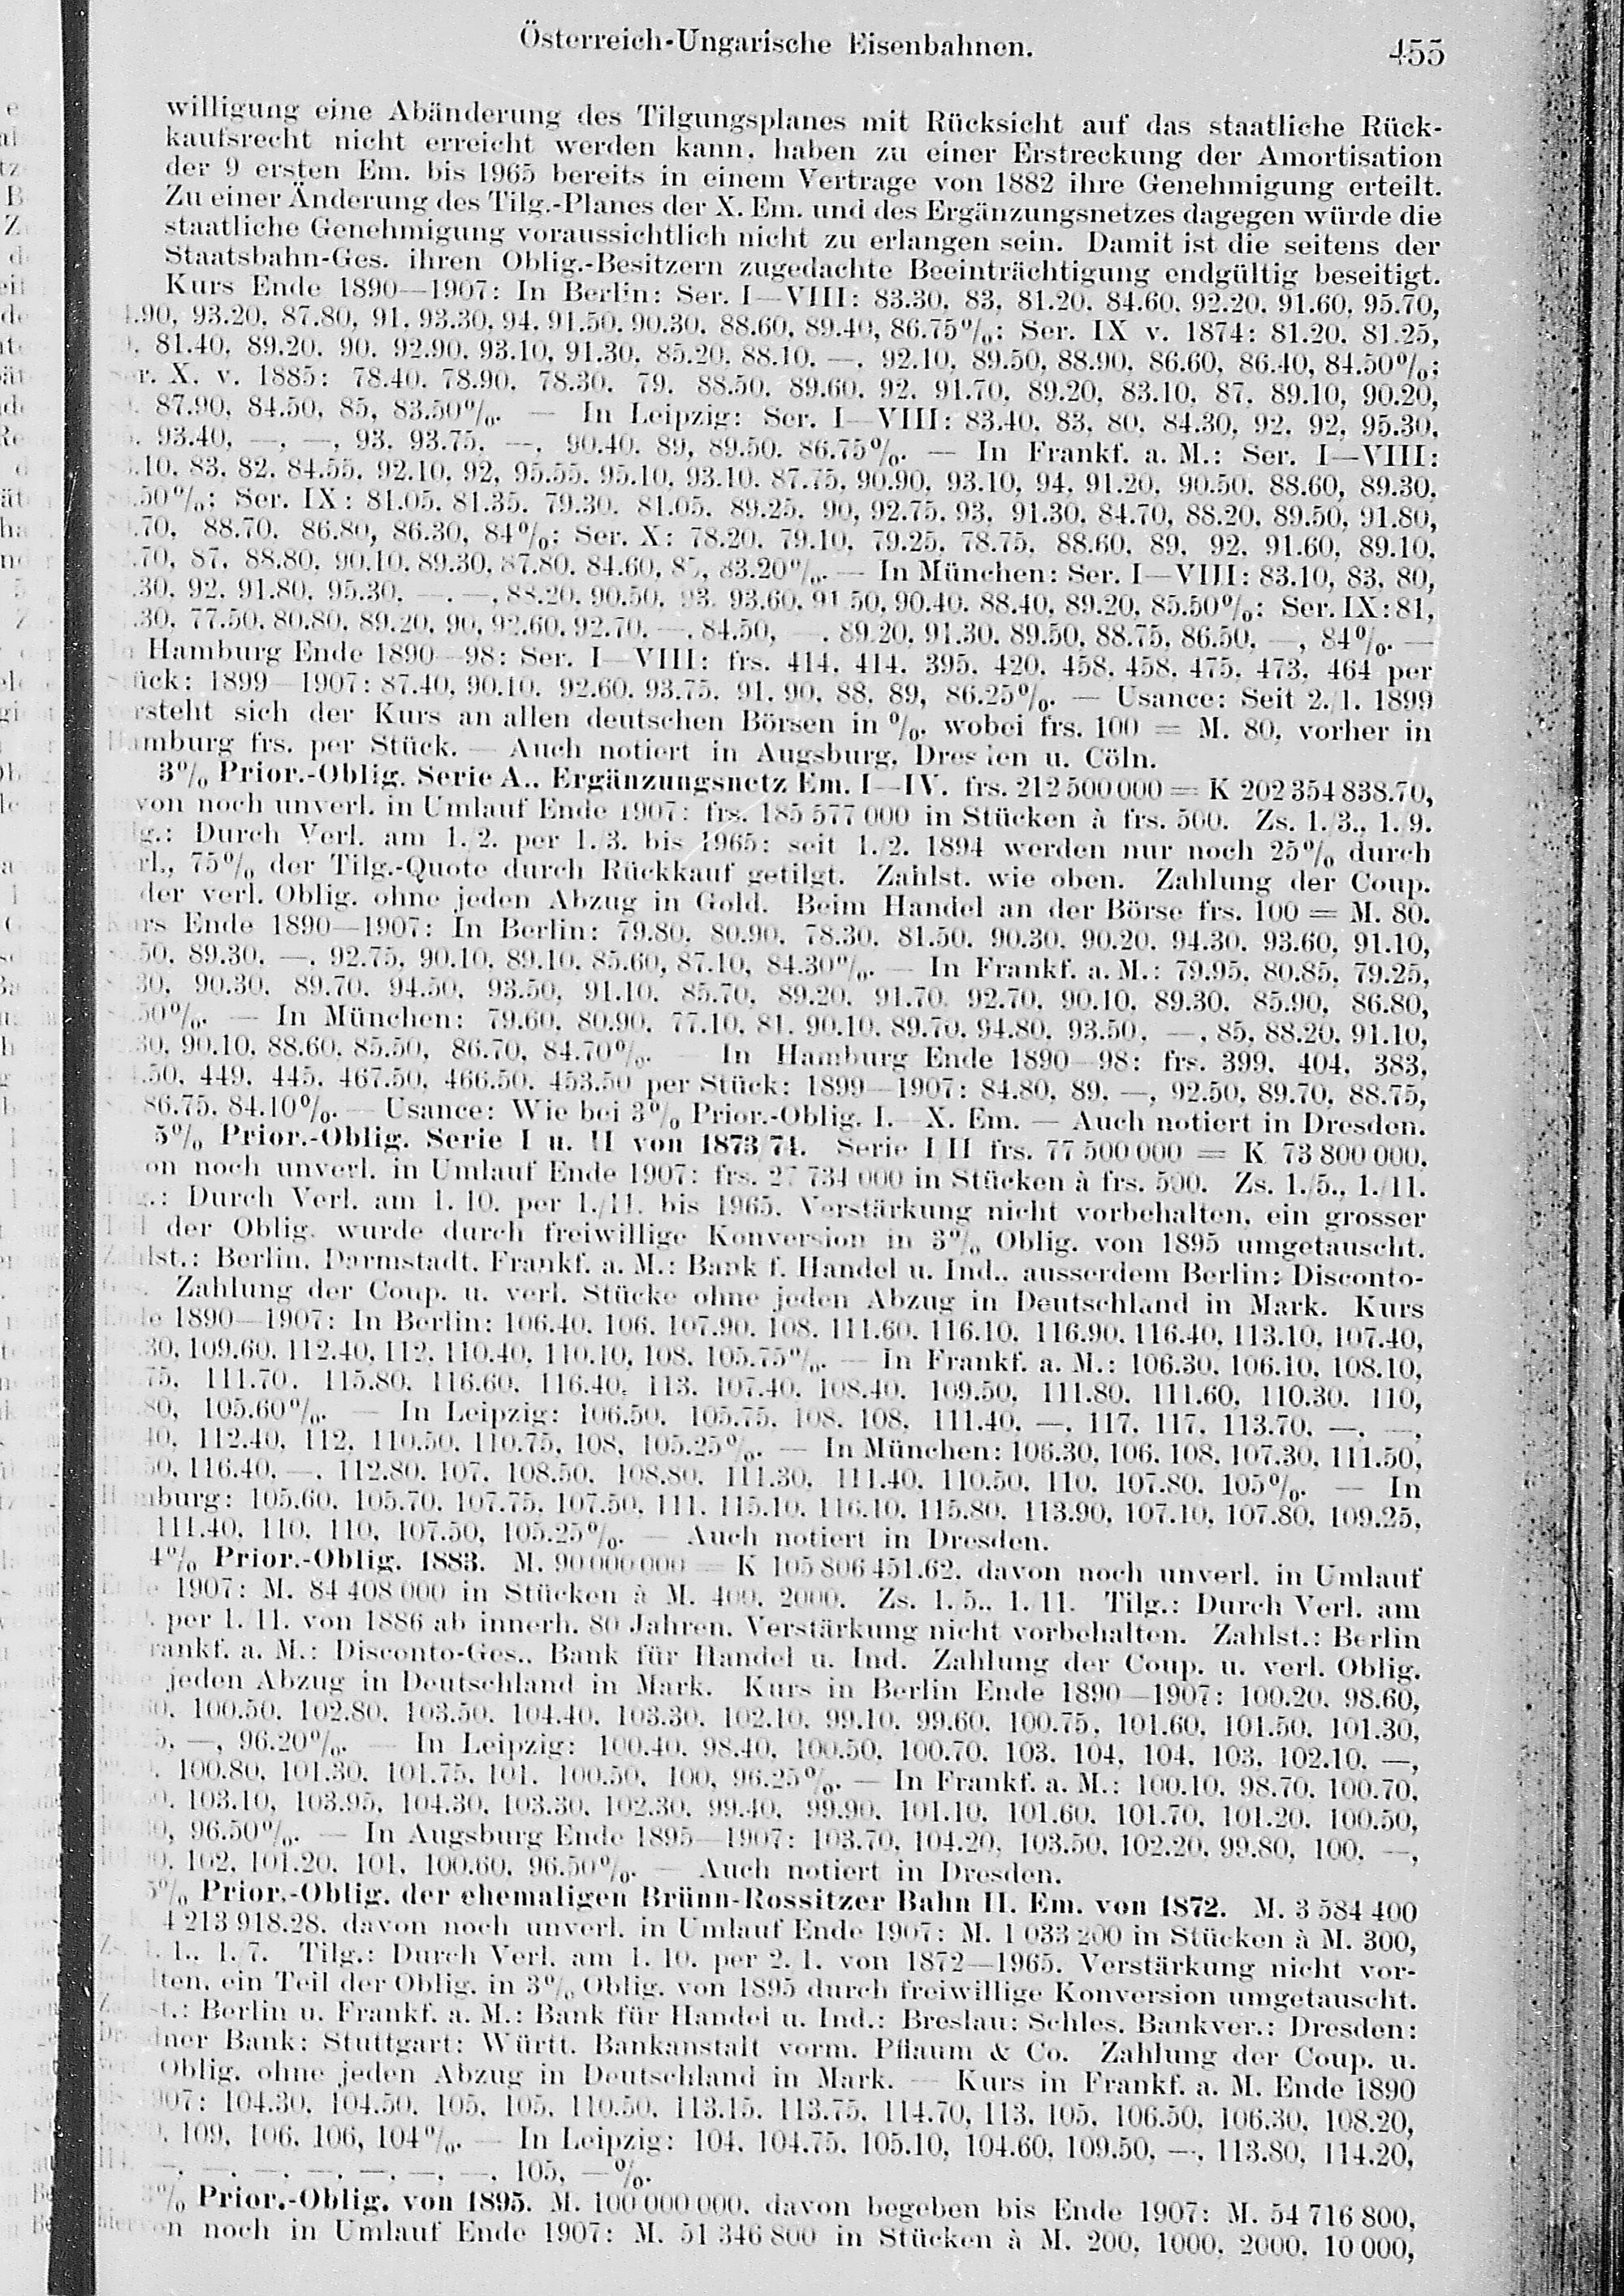 Österreich-Ungarische Eisenbahnen. 455
willigung eine Abänderung des Tilgungsplanes mit Rücksicht auf das staatliche Rück-
kaufsrecht nicht erreicht werden kann, haben zu einer Erstreckung der Amortisation
der 9 ersten Em. bis 1965 bereits in einem Vertrage von 1882 ihre Genehmigung erteilt.
Zu einer Änderung des Tilg.-Planes der X. Em. und des Ergänzungsnetzes dagegen würde die
staatliche Genehmigung voraussichtlich nicht zu erlangen sein. Damit ist die seitens der
Staatsbahn-Ges. ihren Oblig.-Besitzern zugedachte Beeinträchtigung endgültig beseitigt.
Kurs Ende 1890—1907: In Berlin: Ser. I—VIII: 83.30, 83, 81.20, 84.60, 92.20, 91.60, 95.70,
.90, 93.20, 87.80, 91, 93.30, 94, 91.50, 90.30, 88.60, 89.40, 86.75%; Ser. IX v. 1874: 81.20, 81.25,
81.40, 89.20, 90, 92.90, 93.10, 91.30, 85.20, 88.10, —, 92.10, 89.50, 88.90, 86.60, 86.40, 84.50%;
r. X. v. 1885: 78.40, 78.90, 78.30, 79, 88.50, 89.60, 92, 91.70, 89.20, 83.10, 87, 89.10, 90.20,
87.90, 84.50, 85, 83.50%. — In Leipzig: Ser. I—VIII: 83.40, 83, 80, 84.30, 92, 92, 95.30,
93.40, —, —, 93, 93.75, —, 90.40, 89, 89.50, 86.75%. — In Frankf. a. M.: Ser. I—VIII:
.10, 83, 82, 84.55, 92.10, 92, 95.55, 95.10, 93.10, 87.75, 90.90, 93.10, 94, 91.20, 90.50, 88.60, 89.30,
.50%; Ser. IX: 81.05, 81.35, 79.30, 81.05, 89.25, 90, 92.75, 93, 91.30, 84.70, 88.20, 89.50, 91.80,
.70, 88.70, 86.80, 86.30, 84%; Ser. X: 78.20, 79.10, 79.25, 78.75, 88.60, 89, 92, 91.60, 89.10,
.70, 87, 88.80, 90.10, 89.30, 87.80, 84.60, 85, 83.20%. — In München: Ser. I—VIII: 83.10, 83, 80,
.30, 92, 91.80, 95.30, —, —, 88.20, 90.50, 93, 93.60, 91.50, 90.40, 88.40, 89.20, 85.50%; Ser. IX: 81,
.30, 77.50, 80.80, 89.20, 90, 92.60, 92.70, —, 84.50, —, 89.20, 91.30, 89.50, 88.75, 86.50, —, 84%. —
Hamburg Ende 1890—98: Ser. I—VIII: frs. 414, 414, 395, 420, 458, 458, 475, 473, 464 per
Stück; 1899—1907: 87.40, 90.10, 92.60, 93.75, 91, 90, 88, 89, 86.25%. — Usance: Seit 2./1. 1899
versteht sich der Kurs an allen deutschen Börsen in %, wobei frs. 100 = M. 80, vorher in
Hamburg frs. per Stück. — Auch notiert in Augsburg, Dresden u. Cöln.
3% Prior.-Oblig. Serie A., Ergänzungsnetz Em. I—IV. frs. 212 500 000 = K 202 354 838.70,
von noch unverl. in Umlauf Ende 1907: frs. 185 577 000 in Stücken à frs. 500. Zs. 1./3., 1. 9.
lg.: Durch Verl. am 1./2. per 1./3. bis 1965; seit 1./2. 1894 werden nur noch 25% durch
Verl., 75% der Tilg.-Quote durch Rückkauf getilgt. Zahlst. wie oben. Zahlung der Coup.
der verl. Oblig. ohne jeden Abzug in Gold. Beim Handel an der Börse frs. 100 = M. 80.
Kurs Ende 1890—1907: In Berlin: 79.80, 80.90, 78.30, 81.50, 90.30, 90.20, 94.30, 93.60, 91.10,
.50, 89.30, —, 92.75, 90.10, 89.10, 85.60, 87.10, 84.30%. — In Frankf. a. M.: 79.95, 80.85, 79.25,
.30, 90.30, 89.70, 94.50, 93.50, 91.10, 85.70, 89.20, 91.70, 92.70, 90.10, 89.30, 85.90, 86.80,
.50%. — In München: 79.60, 80.90, 77.10, 81, 90.10, 89.70, 94.80, 93.50, —, 85, 88.20, 91.10,
.30, 90.10, 88.60, 85.50, 86.70, 84.70%. — In Hamburg Ende 1890—98: frs. 399, 404, 383,
.50, 449, 445, 467.50, 466.50, 453.50 per Stück; 1899—1907: 84.80, 89, —, 92.50, 89.70, 88.75,
86.75, 84.10%. — Usance: Wie bei 3% Prior.-Oblig. I.—X. Em. — Auch notiert in Dresden.
5% Prior.-Oblig. Serie I u. II von 1873/74. Serie I/II frs. 77 500 000 = K 73 800 000,
von noch unverl. in Umlauf Ende 1907: frs. 27 734 000 in Stücken à frs. 500. Zs. 1./5., 1./11.
Tilg.: Durch Verl. am 1. 10. per 1./11. bis 1965. Verstärkung nicht vorbehalten, ein grosser
Teil der Oblig. wurde durch freiwillige Konversion in 3% Oblig. von 1895 umgetauscht.
Zahlst.: Berlin, Darmstadt, Frankf. a. M.: Bank f. Handel u. Ind., ausserdem Berlin: Disconto-
Zahlung der Coup. u. verl. Stücke ohne jeden Abzug in Deutschland in Mark. Kurs
Ende 1890—1907: In Berlin: 106.40, 106, 107.90, 108, 111.60, 116.10, 116.90, 116.40, 113.10, 107.40,
.30, 109.60, 112.40, 112, 110.40, 110.10, 108, 105.75%. — In Frankf. a. M.: 106.30, 106.10, 108.10,
75, 111.70, 115.80, 116.60, 116.40, 113, 107.40, 108.40, 109.50, 111.80, 111.60, 110.30, 110,
80, 105.60%. — In Leipzig: 106.50, 105.75, 108, 108, 111.40, —, 117, 117, 113.70, —, —,
40, 112.40, 112, 110.50, 110.75, 108, 105.25%. — In München: 106.30, 106, 108, 107.30, 111.50,
50, 116.40, —, 112.80, 107, 108.50, 108.80, 111.30, 111.40, 110.50, 110, 107.80, 105%. — In
Hamburg: 105.60, 105.70, 107.75, 107.50, 111, 115.10, 116.10, 115.80, 113.90, 107.10, 107.80, 109.25,
111.40, 110, 110, 107.50, 105.25%. — Auch notiert in Dresden.
4% Prior.-Oblig. 1883. M. 90 000 000 = K 105 806 451.62, davon noch unverl. in Umlauf
Ende 1907: M. 84 408 000 in Stücken à M. 400, 2000. Zs. 1./5., 1./11. Tilg.: Durch Verl. am
per 1./11. von 1886 ab innerh. 80 Jahren, Verstärkung nicht vorbehalten. Zahlst.: Berlin
Frankf. a. M.: Disconto-Ges., Bank für Handel u. Ind. Zahlung der Coup. u. verl. Oblig.
jeden Abzug in Deutschland in Mark. Kurs in Berlin Ende 1890—1907: 100.20, 98.60,
100.50, 102.80, 103.50, 104.40, 103.30, 102.10, 99.10, 99.60, 100.75, 101.60, 101.50, 101.30,
5, —, 96.20%. — In Leipzig: 100.40, 98.40, 100.50, 100.70, 103, 104, 104, 103, 102.10, —,
100.80, 101.30, 101.75, 101, 100.50, 100, 96.25%. — In Frankf. a. M.: 100.10, 98.70, 100.70,
103.10, 103.95, 104.30, 103.30, 102.30, 99.40, 99.90, 101.10, 101.60, 101.70, 101.20, 100.50,
96.50%. — In Augsburg Ende 1895—1907: 103.70, 104.20, 103.50, 102.20, 99.80, 100, —,
102, 101.20, 101, 100.60, 96.50%. — Auch notiert in Dresden.
5% Prior.-Oblig. der ehemaligen Brünn-Rossitzer Bahn II. Em. von 1872. M. 3 584 400
4 213 918.28, davon noch unverl. in Umlauf Ende 1907: M. 1 033 200 in Stücken à M. 300,
Zs. 1. 1., 1./7. Tilg.: Durch Verl. am 1. 10. per 2. 1. von 1872—1965. Verstärkung nicht vor-
lten, ein Teil der Oblig. in 3% Oblig. von 1895 durch freiwillige Konversion umgetauscht.
Zahlst.: Berlin u. Frankf. a. M.: Bank für Handel u. Ind.; Breslau: Schles. Bankver.; Dresden:
Dresdner Bank; Stuttgart: Württ. Bankanstalt vorm. Pflaum & Co. Zahlung der Coup. u.
verl. Oblig. ohne jeden Abzug in Deutschland in Mark. — Kurs in Frankf. a. M. Ende 1890
bis 1907: 104.30, 104.50, 105, 105, 110.50, 113.15, 113.75, 114.70, 113, 105, 106.50, 106.30, 108.20,
109, 106, 106, 104%. — In Leipzig: 104, 104.75, 105.10, 104.60, 109.50, —, 113.80, 114.20,
114, —, —, —, —, —, —, —, 105, —%.
3% Prior.-Oblig. von 1895. M. 100 000 000, davon begeben bis Ende 1907: M. 54 716 800,
hiervon noch in Umlauf Ende 1907: M. 51 346 800 in Stücken à M. 200, 1000, 2000, 10 000,